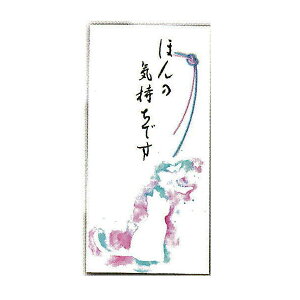 ほんの
気持ちです